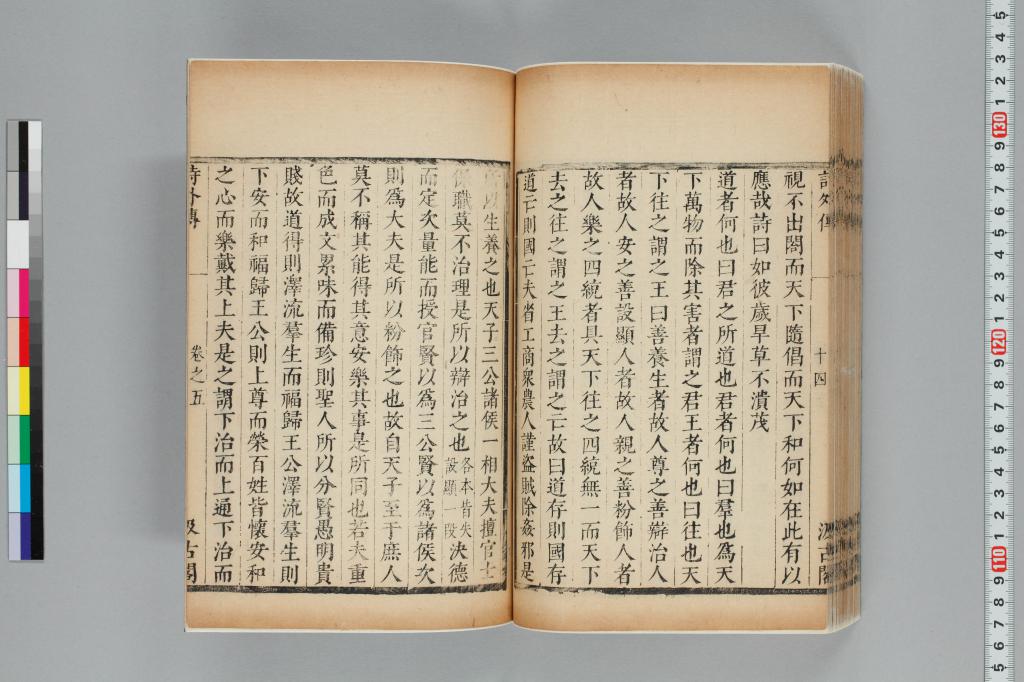 視不出閤而天下隨倡而天下和何如在此有以
應哉詩曰如彼歲旱草不潰茂
道者何也曰君之所道也君者何也曰羣也為天
下萬物而除其害者謂之君王者何也曰往也天
下往之謂之王曰善養生者故人尊之善辯治人
者故人安之善設顯人者故人親之善粉飾人者
故人樂之四統者具天下往之四統無一而天下
去之往之謂之王去之謂之亡故曰道存則國存
道亡則國亡夫省工商衆農人謹盜賊除姦邪是
所以生養之也天子三公諸侯一相大夫擅官士
保職莫不治理是所以辯治之也各本皆失設顯一段決德
而定次量能而授官賢以為三公賢以為諸侯次
則爲大夫是所以粉飾之也故自天子至于庶人
莫不稱其能得其意安樂其事是所同也若夫重
色而成文累味而備珍則聖人所以分賢愚明貴
賤故道得則澤流羣生而福歸王公澤流羣生則
下安而和福歸王公則上尊而榮百姓皆懷安和
之心而樂戴其上夫是之謂下治而上通下治而
卷之五
十四